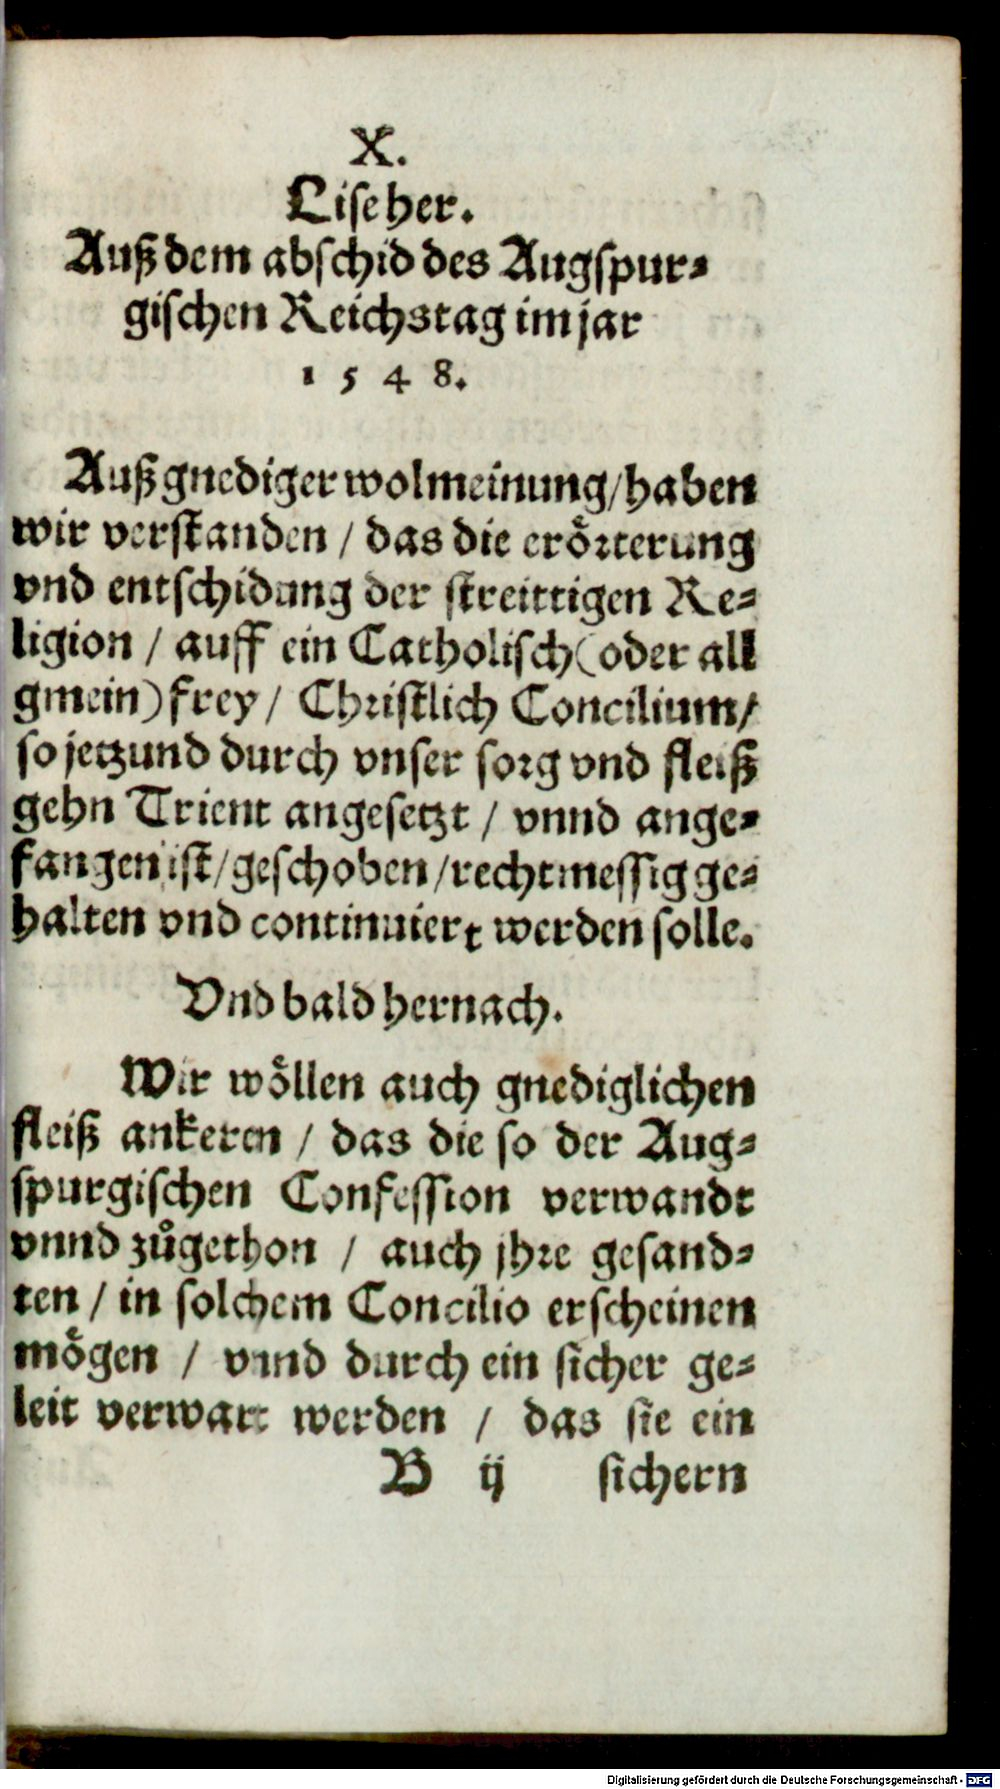 X.
Lise her.
Auß dem abschid des Augspur-
gischen Reichstag im jar
1 5 4 8.
Auß gnediger wolmeinung/ haben
wir verstanden / das die erörterung
vnd entschidung der streittigen Re-
ligion / auff ein Catholisch (oder all
gmein) frey / Christlich Concilium/
so jetzund durch vnser sorg vnd fleiß
gehn Trient angesetzt / vnnd ange-
fangen ist/ geschoben / rechtmessig ge-
halten vnd continuiert werden solle.
Vnd bald hernach.
Wir wöllen auch gnediglichen
fleiß ankeren / das die so der Aug-
spurgischen Confession verwandt
vnnd zůgethon / auch jhre gesand-
ten / in solchem Concilio erscheinen
mögen / vnnd durch ein sicher ge-
leit verwart werden / das sie ein
B ij sichern
Digitalisierung gefördert durch die Deutsche Forschungsgemeinschaft - DFG